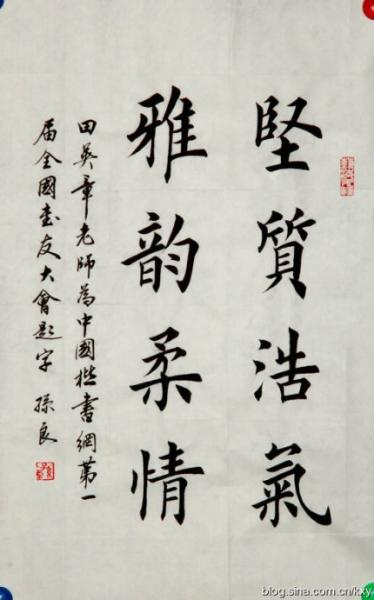 堅質浩氣
雅韵柔情
田英章老師為中國楷書網第一
届全國書友大會題字 孫良
blog.sina.com.cn/kxy